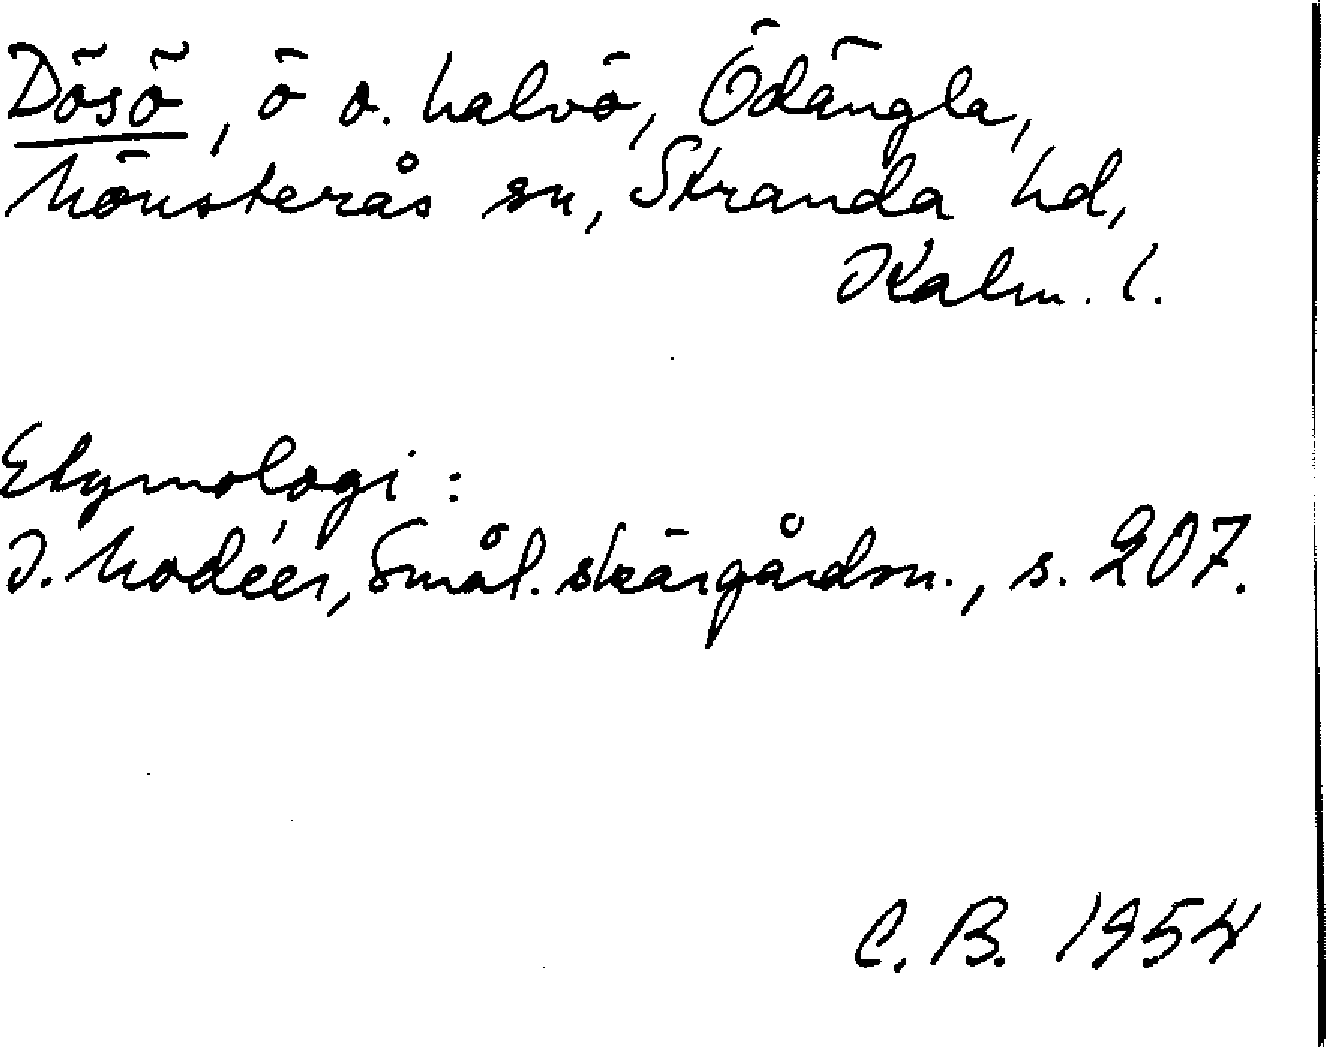 Dösö, ö o. halvö, Ödängla,
Mönsterås sn, Stranda hd,
Kalm. l.
Etymologi:
I. Modéer, Smål. skärgårdsn., s. 207.
C. B. 1954